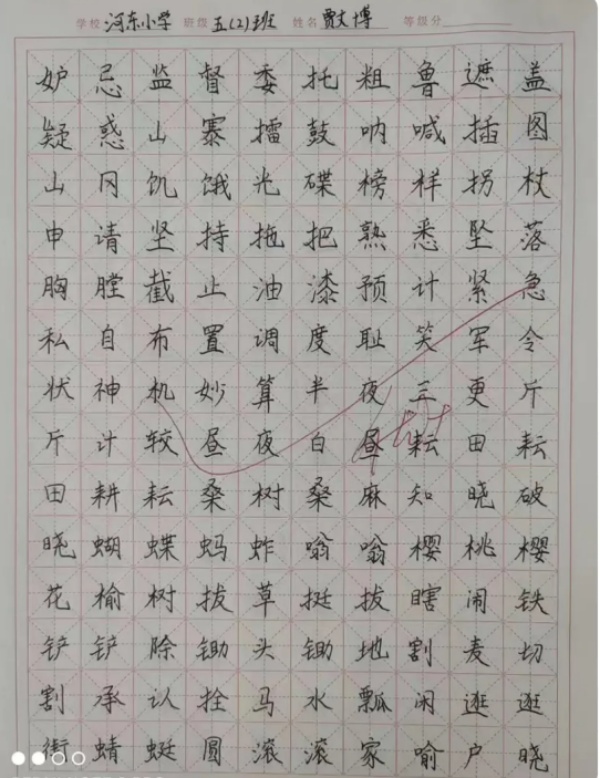 学校 河东小学 班级 五(2)班 姓名 贾文博 等级分
妒忌监督委托粗鲁遮盖
疑惑山寨擂鼓呐喊插图
山冈饥饿光碟榜样拐杖
申请坚持拖把熟悉坠落
胸膛截止油漆预计紧急
私自布置调度耻笑军令
状神机妙算半夜三更斤
斤计较昼夜白昼耘田耘
田耕耘桑树桑麻知晓破
晓蝴蝶蚂蚱嗡嗡樱桃樱
花榆树拔草挺拔瞎闹铁
铲铲除锄头锄地割麦切
割承认拴马水瓢闲逛逛
街蜻蜓圆滚滚家喻户晓